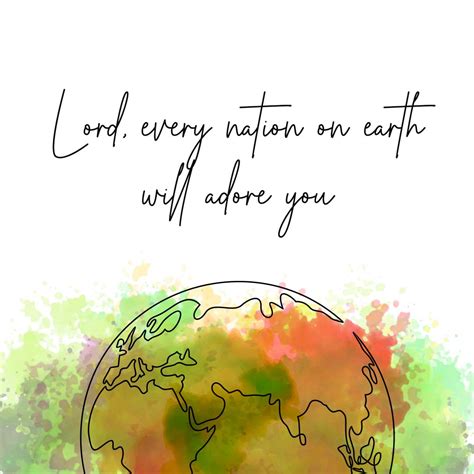 Lord, every nation on earth
will adore you